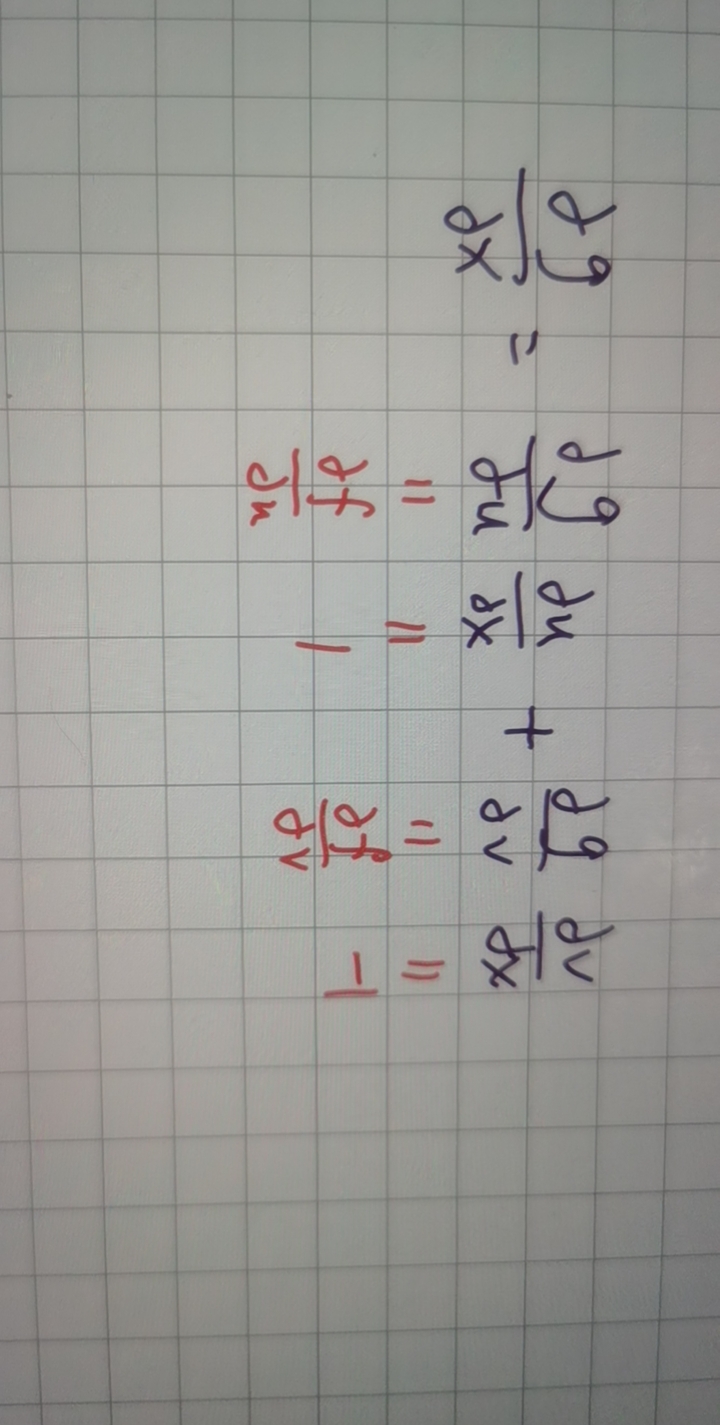 ∂g/∂x = ∂g/∂u ∂u/∂x + ∂g/∂v ∂v/∂x
= = = =
∂f/∂u 1 ∂f/∂v -1